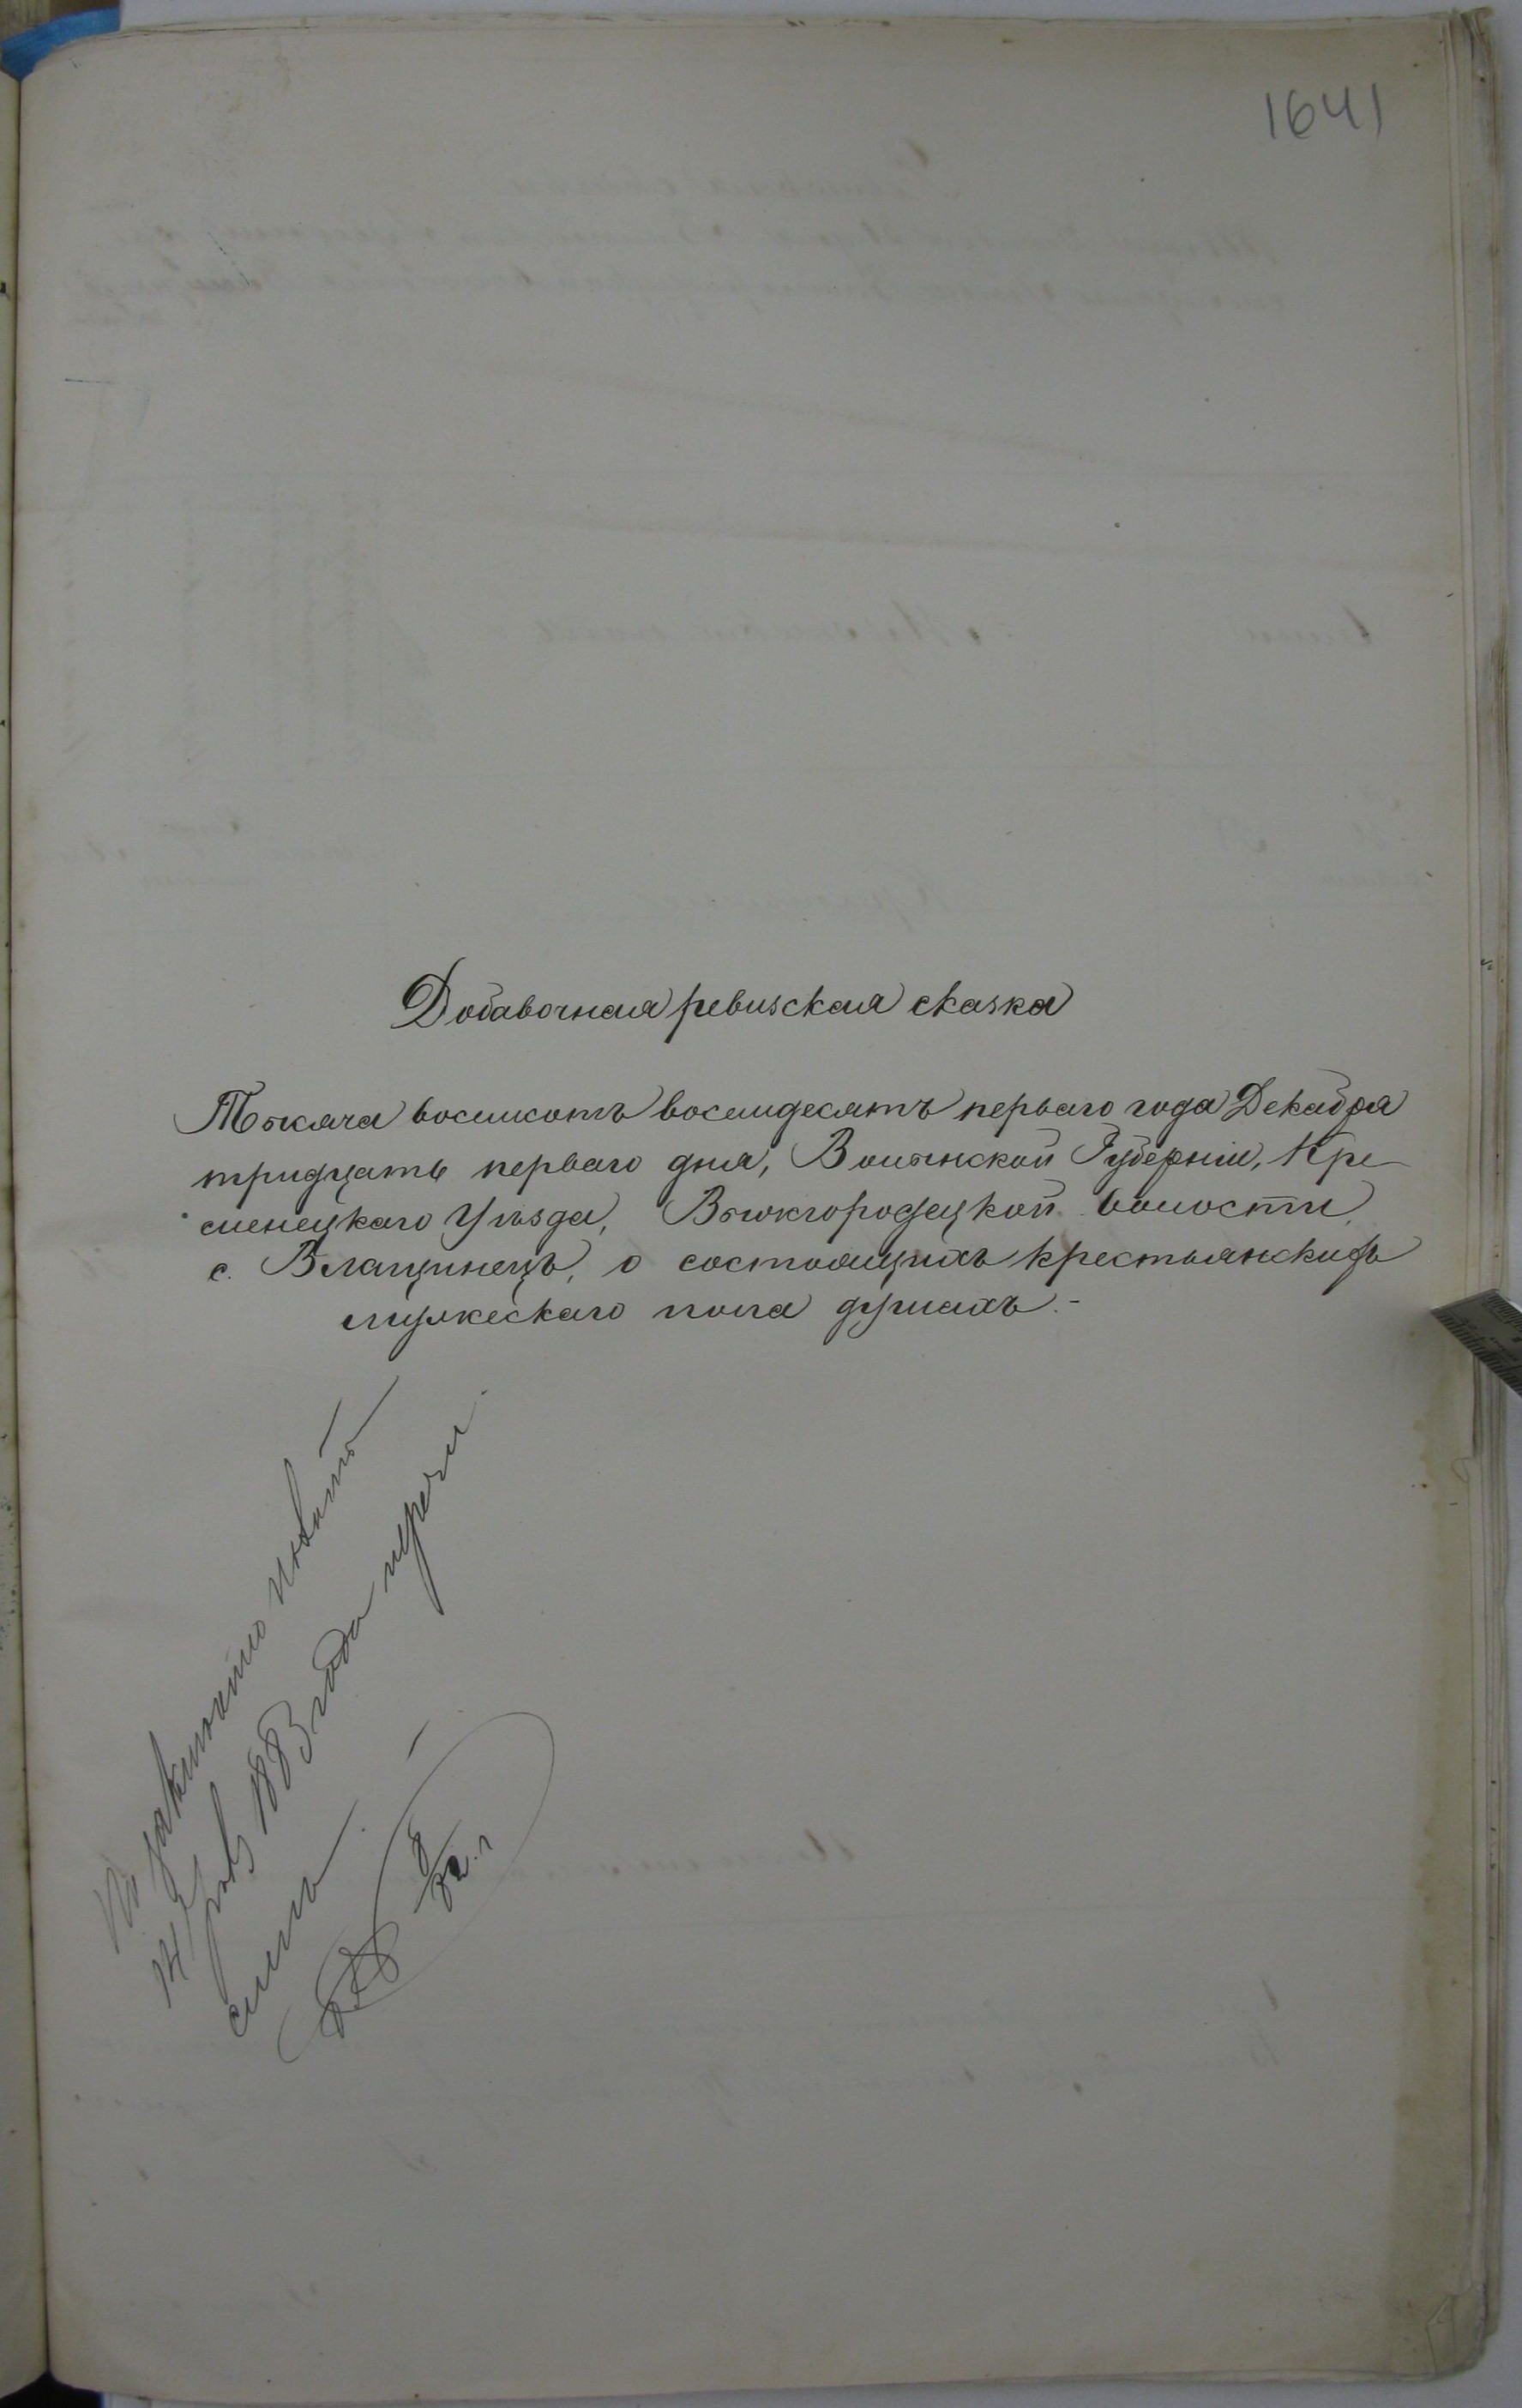 1641
Добавочная ревизская сказка
Тысяча восемсотъ восемдесятъ перваго года Декабря
тридцать перваго дня, Волынской Губерніи, Кре-
менецкаго Уѣзда, Вышгородецкой волости,
с. Влащинецъ, о состоящихъ крестьянскихъ
мужескаго пола душахъ.-
По
1883 года